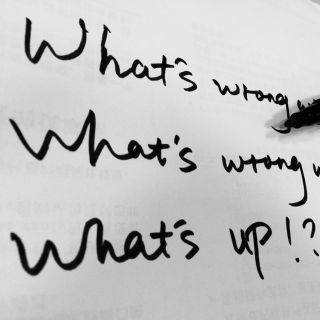 What's wrong
What's wrong
What's up!?